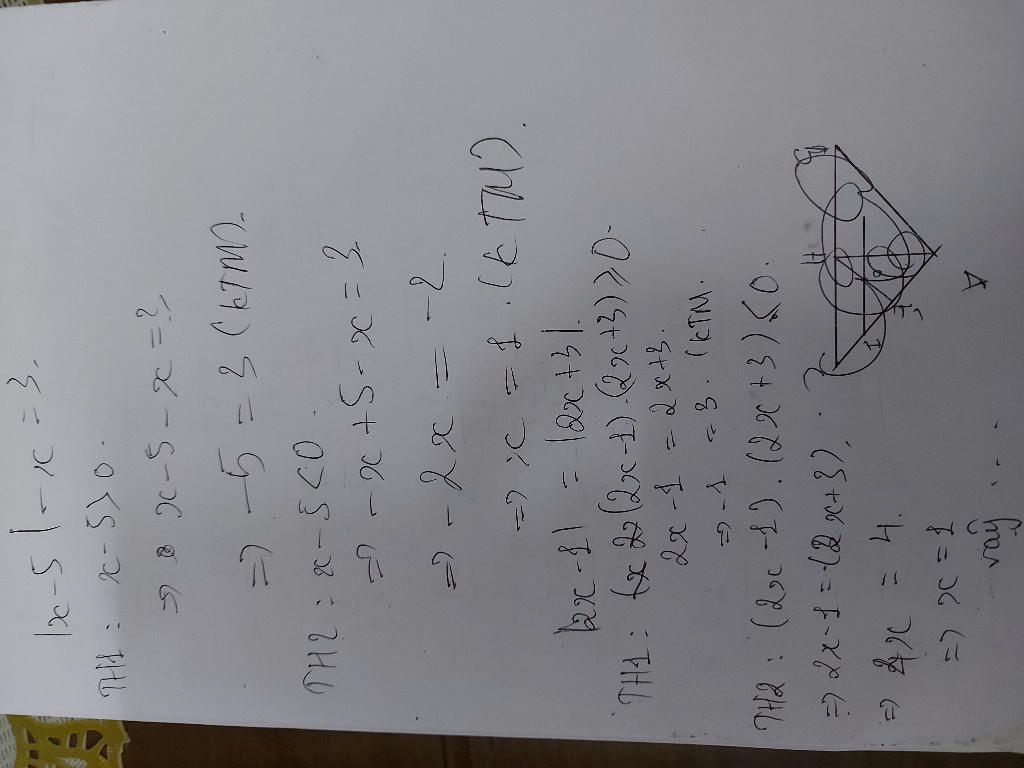 |x-5|-x=3.
TH1: x-5>0.
=> x-5-x=3.
=> -5=3 (KTM).
TH2: x-5<0.
=> -x+5-x=3.
=> -2x=-2.
=> x=1. (KTM).
|2x-1|=|2x+3|.
TH1: (2x-1).(2x+3)≥0.
2x-1=2x+3.
=> -1=3. (KTM.
TH2: (2x-1).(2x+3)≤0.
=> 2x-1=(2x+3).
=> 4x=4.
=> x=1
vậy
H
I
E
A